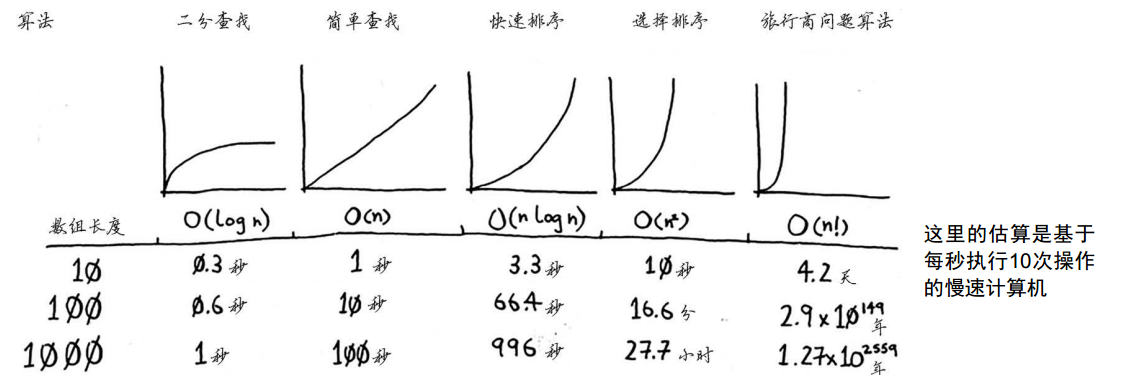 算法 二分查找 简单查找 快速排序 选择排序 旅行商问题算法
数组长度 O(log n) O(n) O(n log n) O(n²) O(n!)
10 0.3秒 1秒 3.3秒 10秒 4.2天
100 0.6秒 10秒 66.4秒 16.6分 2.9x10¹⁴⁹年
1000 1秒 100秒 996秒 27.7小时 1.27x10²⁵⁵⁹年
这里的估算是基于
每秒执行10次操作
的慢速计算机